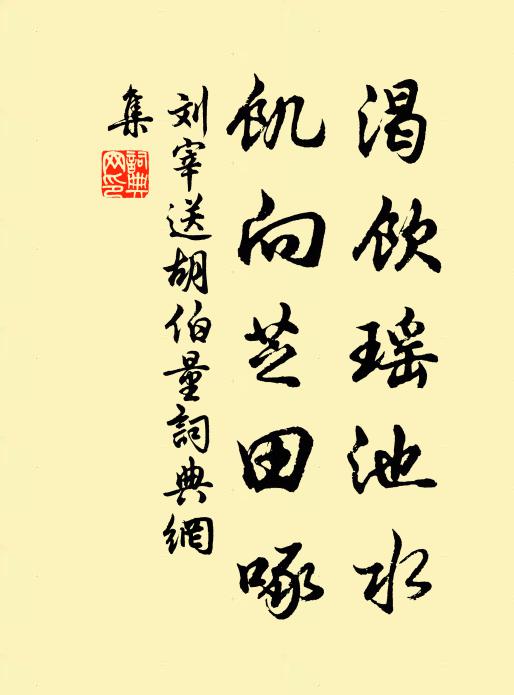 渴饮瑶池水
飢向芝田啄
刘宰送胡伯量詞典網
集
詞典
网印